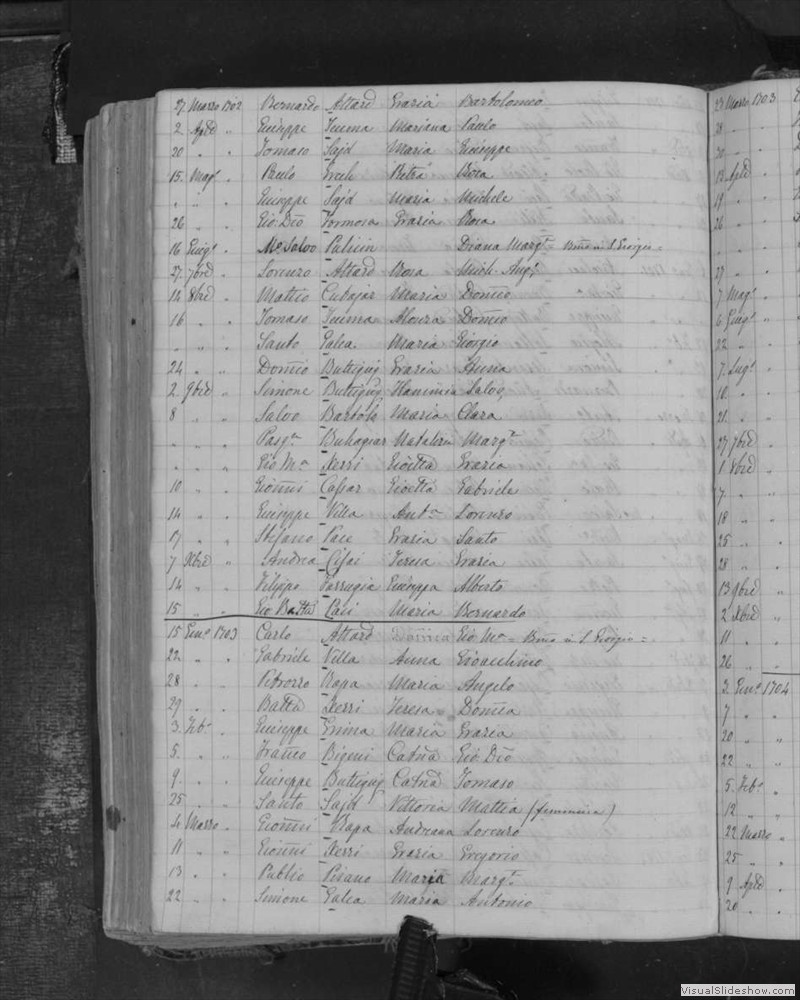 27 Marzo 1702 Bernardo Attard Grazia Bartolomeo
2 Aple „ Giuseppe Teuma Mariana Paulo
20 „ „ Tomaso Sajd Maria Giuseppe
15. Mago „ Paulo Petra Rosa
„ „ „ Giuseppe Sajd Maria Michele
26 „ „ Gio. Dio Formosa Grazia Rosa
16 Giugo „ Mo Salvo Pulicin Diana Margta = Bmo in S. Giorgio =
27 7bre „ Lorenzo Attard Rosa Mich. Ango
14 8bre „ Matteo Cubajar Maria Domco
16 „ „ Tomaso Teuma Alonza Domco
„ „ „ Santo Galea Maria Giorgio
24 „ „ Domco Buttigig Grazia Anna
2 9bre „ Simone Buttigig Salvo
8 „ „ Salvo Bartolo Maria Clara
„ „ „ Pasqle Buhagiar Natalizia Margta
„ „ „ Gio Ma Xerri Gioetta Grazia
10 „ „ Gionni Caspar Gioetta Gabriele
14 „ „ Giuseppe Villa Anta Lorenzo
17 „ „ Stefano Pace Grazia Santo
7 Xbre „ Andrea Teresa Grazia
14 „ „ Filippo Farrugia Giuseppa Alberto
15 „ „ Gio Batta Paci Maria Bernardo
15 Geno 1703 Carlo Attard Domca Gio Ma = Bmo in S. Giorgio =
22 „ „ Gabriele Villa Anna Gioacchino
28 „ „ Petrozzo Rapa Maria Angelo
29 „ „ Batta Xerri Teresa Domca
3 Febo „ Giuseppe Maria Grazia
5. „ „ Franco Bigeni Catna Gio Dio
9. „ „ Giuseppe Buttigig Catna Tomaso
25 „ „ Santo Sajd Vittoria Mattia (femmina)
4 Marzo „ Gionni Rapa Andreana Lorenzo
11 „ „ Gionni Xerri Grazia Gregorio
13 „ „ Publio Pisano Maria Margta
22 „ „ Simone Galea Maria Antonio
23 Marzo 1703
28 „ „
30 „ „
12 Aple „
19 „ „
26 „ „
„ „ „
27 „ „
7 Mago „
6 Giugo „
22 „ „
7. Lugo „
10. „ „
21. „ „
27 7bre „
1 8bre „
7. „ „
18 „ „
25 „ „
28 „ „
13 9bre „
2 Xbre „
11 „ „
26 „ „
2 Geno 1704
7 „ „
20 „ „
22 „ „
5. Febo „
12 „ „
22 Marzo „
25 „ „
9 Aple „
20 „ „
VisualSlideshow.com